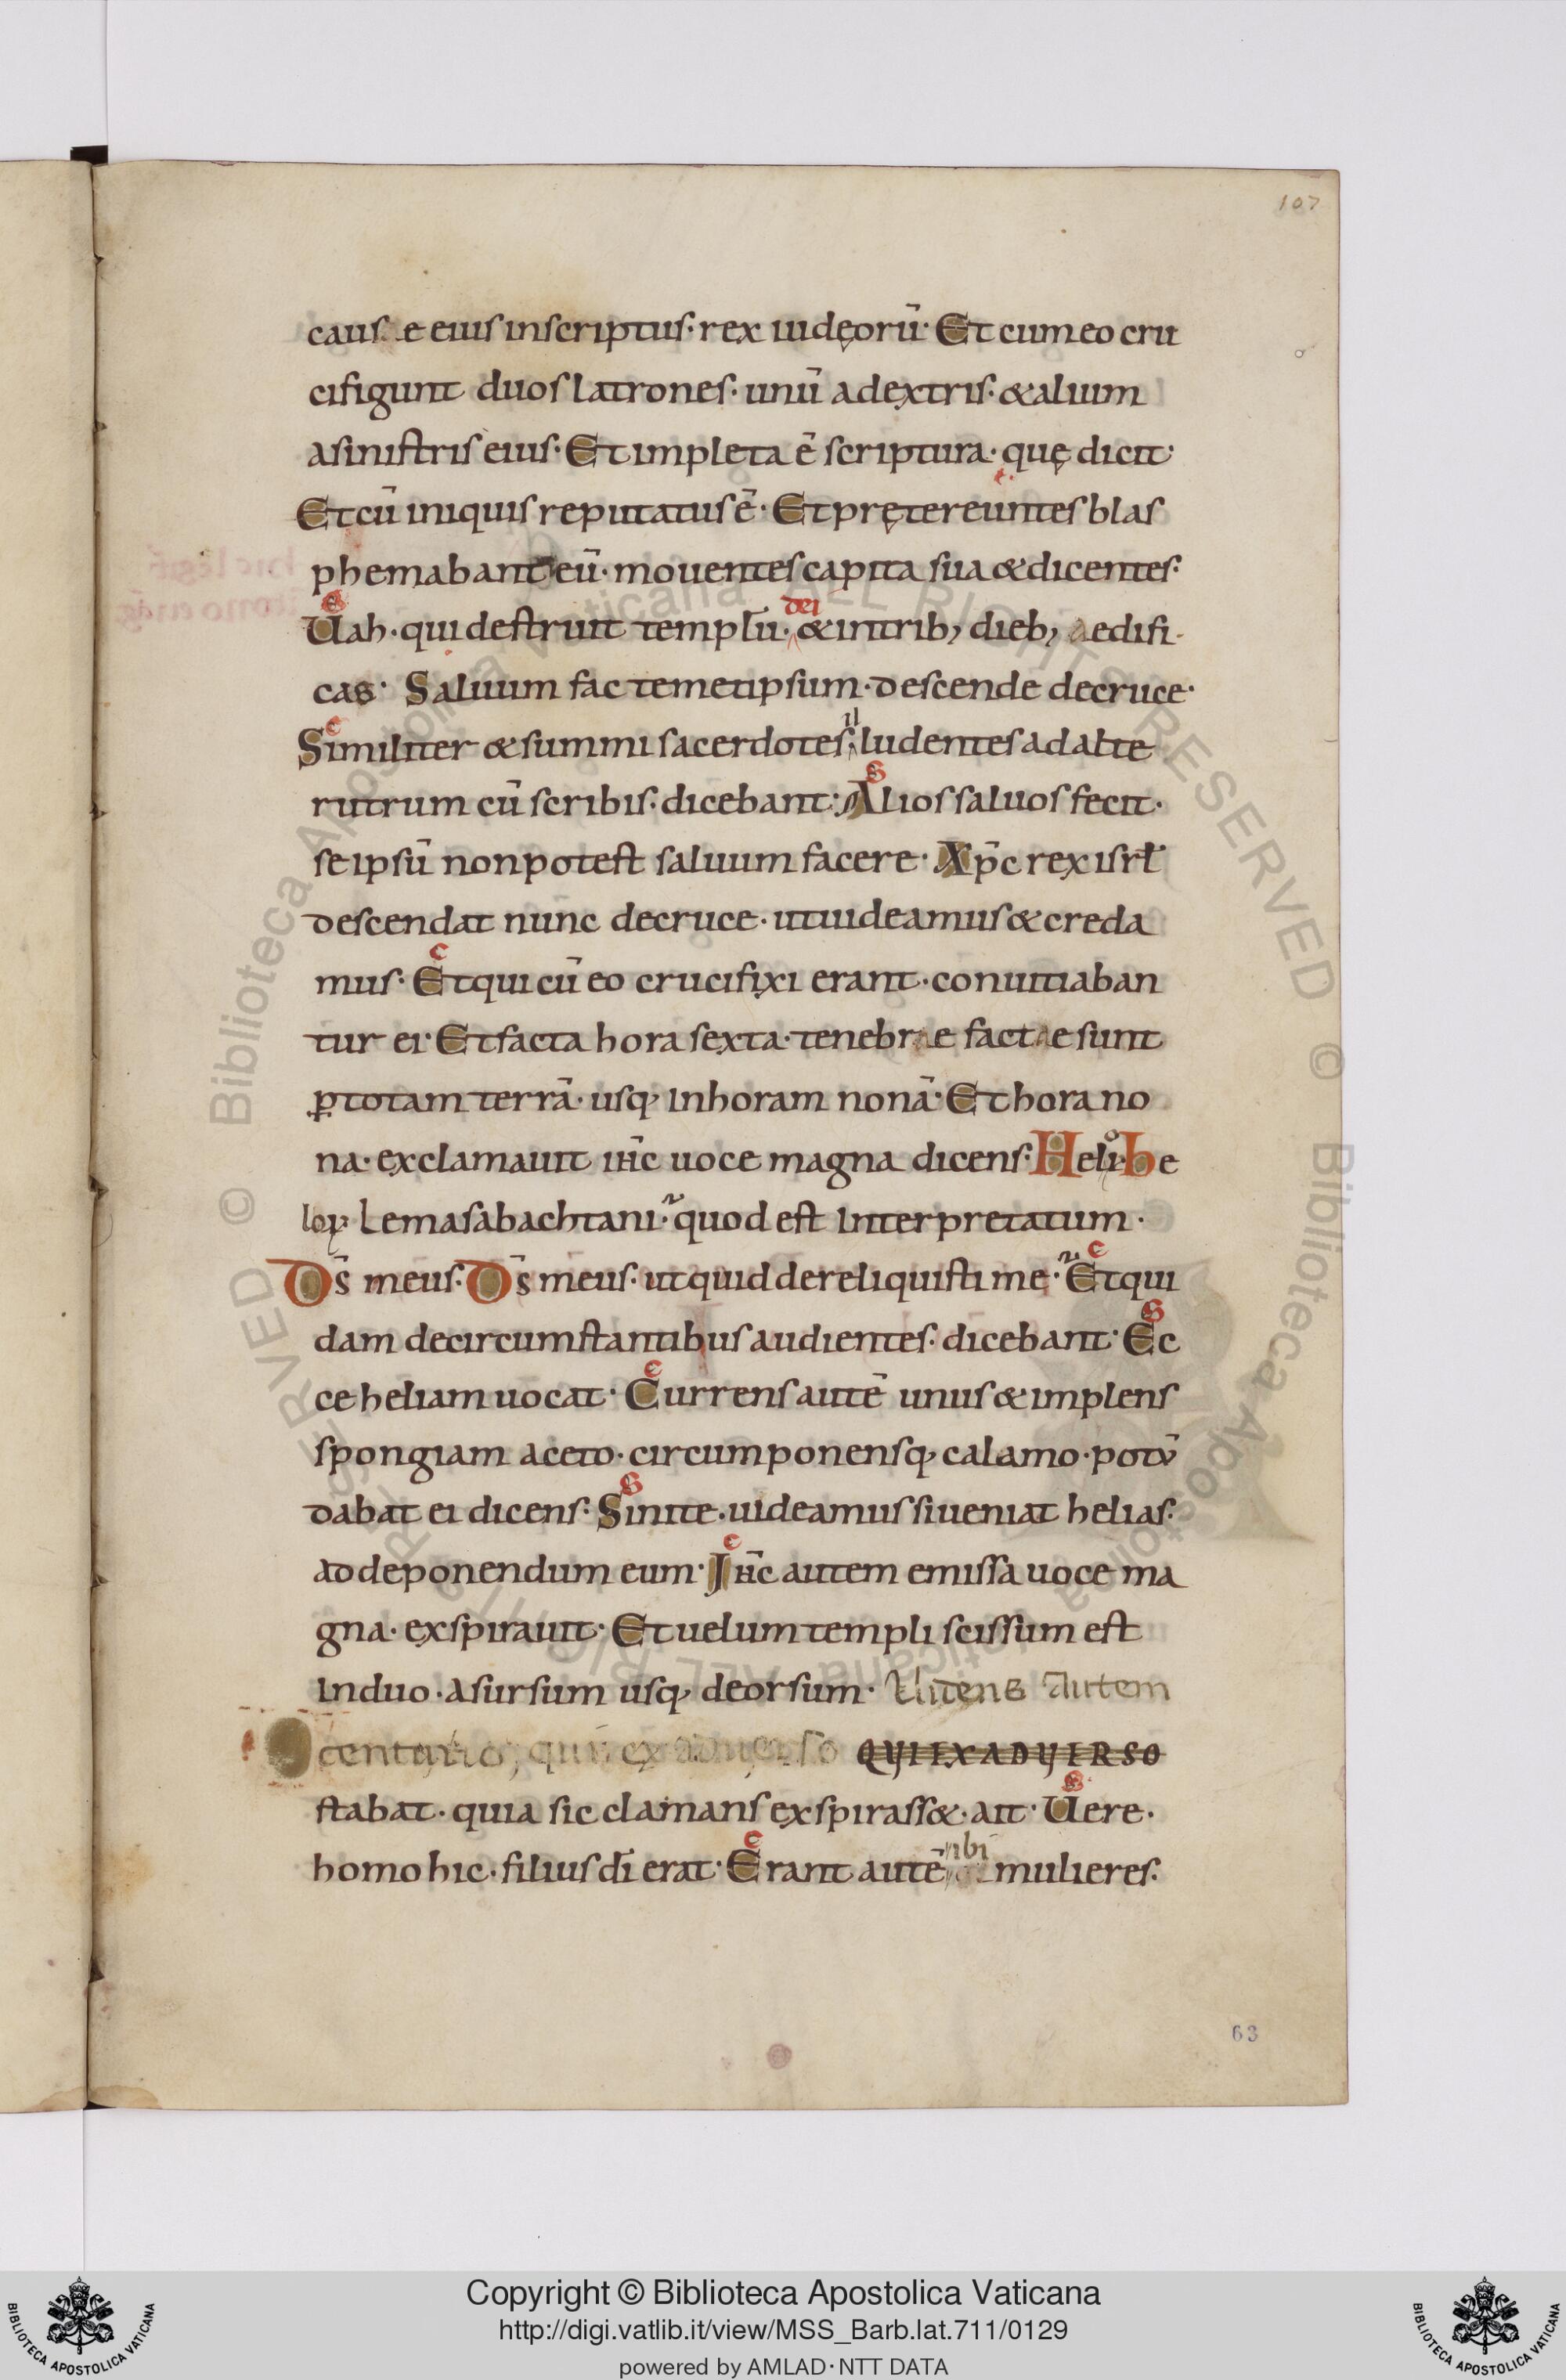 107
causae eius inscriptus· rex iudęorū· Et cum eo cru
cifigunt duos latrones· unū a dextris· & alium
a sinistris eius· Et impleta ē scriptura· quę dicit·
Et cū iniquis reputatus ē· Et prętereuntes blas
phemabant eū· mouentes capita sua & dicentes·
Uah· qui destruit templū· dei & in trib; dieb; aedifi-
cas· Saluum fac temetipsum· descende de cruce·
Similiter & summi sacerdotes· illudentes ad alte
rutrum cū scribis· dicebant· Alios saluos fecit·
se ipsū non potest saluum facere· Xp̄c rex isrł
descendat nunc de cruce· ut uideamus & creda
mus· Et qui cū eo crucifixi erant· conuitiaban
tur ei· Et facta hora sexta· tenebrae factae sunt
ꝑ totam terrā· usq; in horam nonā· Et hora no
na· exclamauit ih̄c uoce magna dicens· Heloi· he
loy· lema sabachtani· quod est interpretatum·
D̄s meus· D̄s meus· ut quid dereliquisti me· Et qui
dam de circumstantibus audientes· dicebant· Ec
ce heliam uocat· Currens autē unus & implens
spongiam aceto· circumponensq; calamo· potū
dabat ei dicens· Sinite· uideamus si ueniat helias·
ad deponendum eum· Ih̄c autem emissa uoce ma
gna· exspirauit· Et uelum templi scissum est
in duo· a sursum usq; deorsum· Uidens autem
centurio, qui ex aduerso QUI EX ADUERSO
stabat· quia sic clamans exspirass&· ait· Uere·
homo hic· filius dī erat· Erant autē ibi mulieres·
63
Copyright © Biblioteca Apostolica Vaticana
http://digi.vatlib.it/view/MSS_Barb.lat.711/0129
powered by AMLAD·NTT DATA
BIBLIOTECA APOSTOLICA VATICANA
BIBLIOTECA APOSTOLICA VATICANA